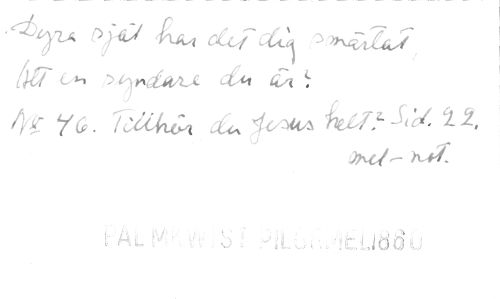 Dyra själ har det dig smärtat,
Att en syndare du är?
No 46. Tillhör du Jesus helt? Sid. 22.
mel-not.
PALMKWIST PILGRMEL 1880